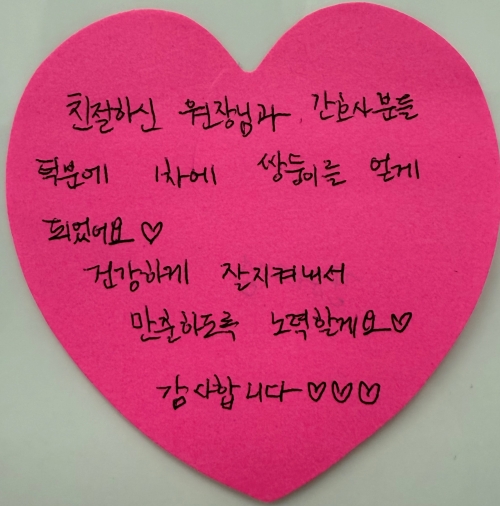 친절하신 원장님과 간호사분들
덕분에 1차에 쌍둥이를 얻게
되었어요♡
건강하게 잘지켜내서
만출하도록 노력할게요♡
감사합니다♡♡♡